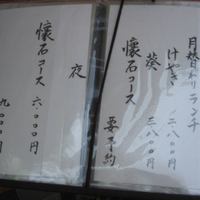 月替わりランチ
けやき 二八〇〇円
葵 三八〇〇円
懐石コース 要予約
夜
懐石コース 六、〇〇〇円
九、〇〇〇円